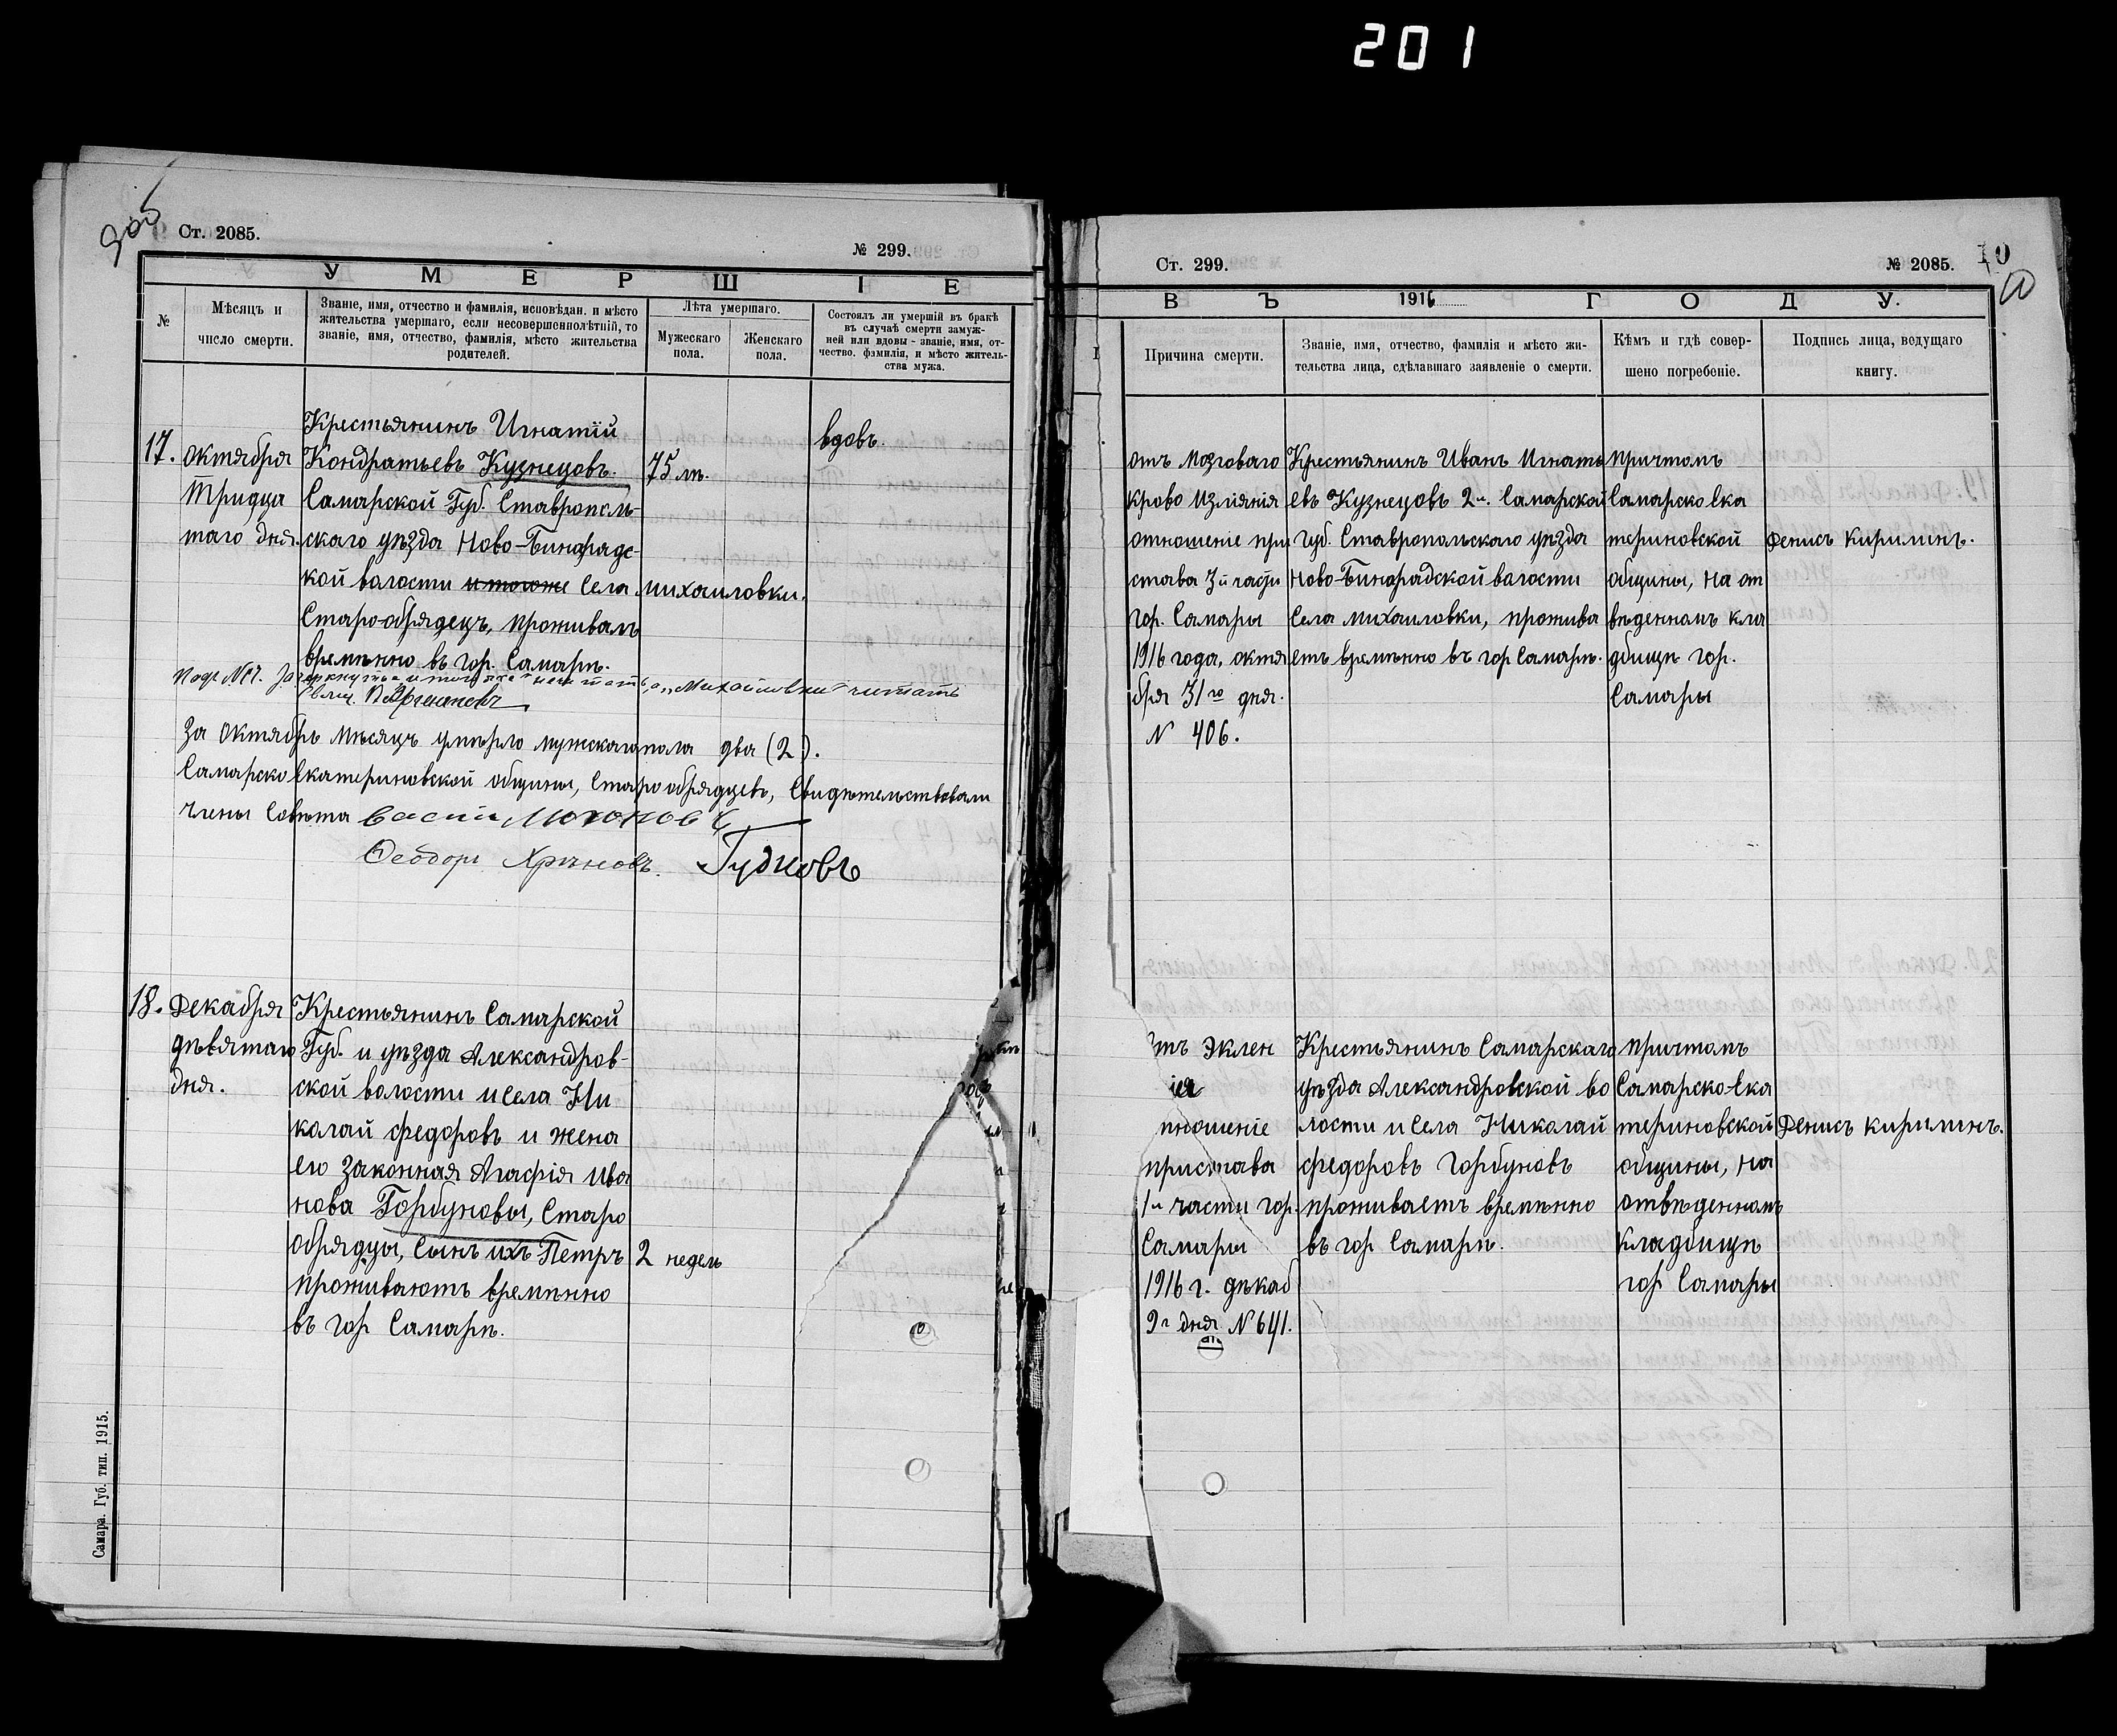 201
Ст. 2085.
№ 299.
УМЕРШІЕ
№
Мѣсяцъ и
число смерти.
Званіе, имя, отчество и фамилія, исповѣдан. и мѣсто
жительства умершаго, если несовершеннолѣтній, то
званіе, имя, отчество, фамилія, мѣсто жительства
родителей.
Лѣта умершаго.
Мужескаго
пола.
Женскаго
пола.
Состоялъ ли умершій въ бракѣ
въ случаѣ смерти замуж-
ней или вдовы - званіе, имя, от-
чество, фамилія, и мѣсто житель-
ства мужа.
17.
октября
Тридца
таго дня.
Крестьянинъ Игнатій
Кондратьевъ Кузнецовъ.
Самарской Губ. Ставрополь-
скаго уѣзда Ново-Бинарадс-
кой валости и тогоже Села Михаиловки.
Старообрядецъ, проживалъ
времѣнно въ гор. Самарѣ.
75 лѣ.
вдовъ.
За октябрь мѣсяцъ умѣрло мужскаго пола два (2).
Самарско Екатериновской общины, Старообрядцевъ, Свидѣтельствовали
члены Совѣта
Феодоръ Хрѣновъ. Гудковъ
18.
Декабря
дѣвятаго
дня.
Крестьянинъ Самарской
Губ. и уѣзда Александров-
ской волости и села Ни
колай Федоровъ и жена
его законная Агафія Ива
нова Горбуновы, Старо
обрядцы, Сынъ ихъ Петръ
проживаютъ времѣнно
въ гор Самарѣ.
2 недель
Самара. Губ. тип. 1915.
Ст. 299.
№ 2085.
10
ВЪ 1916 ГОДУ.
Причина смерти.
Званіе, имя, отчество, фамилія и мѣсто жи-
тельства лица, сдѣлавшаго заявленіе о смерти.
Кѣмъ и гдѣ совер-
шено погребеніе.
Подпись лица, ведущаго
книгу.
отъ мозговаго
крово излияния
отношеніе при
става 3й части
гор. Самары
1916 года, октя
бря 31го дня.
N 406.
Крестьянинъ Иванъ Игнать
евъ Кузнецовъ 2й. Самарской
Губ. Ставропольскаго уѣзда
Ново-Бинарадской валости
Села Михаиловки, прожива
етъ времѣнно въ гор Самарѣ.
причтомъ
Самарско Ека
териновской
общины, на от
вѣденномъ кла
дбищѣ гор.
Самары
Денисъ Кирилинъ.
тъ Эклен
ия
тношеніе
пристава
1й части гор.
Самары
1916 г. дѣкаб
9г дня N 641.
Крестьянинъ Самарскаго
уѣзда Александровской во
лости и села Николай
Федоровъ Горбуновъ
проживаетъ времѣнно
въ гор Самарѣ.
причтомъ
Самарско-Ека
териновской
общины, на
отвѣденномъ
кладбищѣ
гор Самары
Денисъ Кирилинъ.